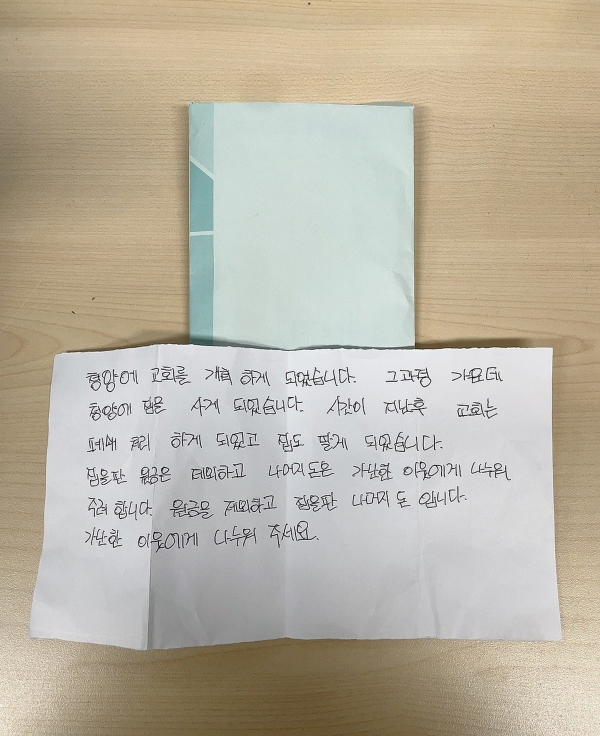 형양에 교회를 개척 하게 되었습니다. 그과정 가운데
형양에 집을 사게 되었습니다. 시간이 지난후 교회는
폐쇄 처리 하게 되었고 집도 팔게 되었습니다.
집을판 원금은 제외하고 나머지돈은 가난한 이웃에게 나누워
주려 합니다. 원금을 제외하고 집을판 나머지 돈 입니다.
가난한 이웃에게 나누워 주세요.